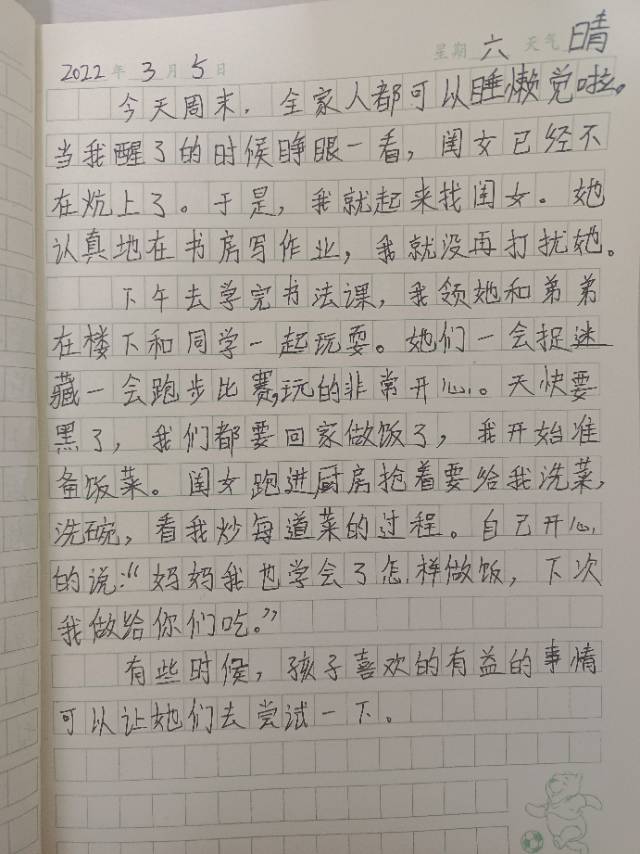 2022年3月5日 星期六 天气晴
今天周末，全家人都可以睡懒觉啦。
当我醒了的时候睁眼一看，闺女已经不
在炕上了。于是，我就起来找闺女。她
认真地在书房写作业，我就没再打扰她。
下午去学完书法课，我领她和弟弟
在楼下和同学一起玩耍。她们一会捉迷
藏一会跑步比赛，玩的非常开心。天快要
黑了，我们都要回家做饭了，我开始准
备饭菜。闺女跑进厨房抢着要给我洗菜，
洗碗，看我炒每道菜的过程。自己开心
的说：“妈妈我也学会了怎样做饭，下次
我做给你们吃。”
有些时候，孩子喜欢的有益的事情
可以让她们去尝试一下。